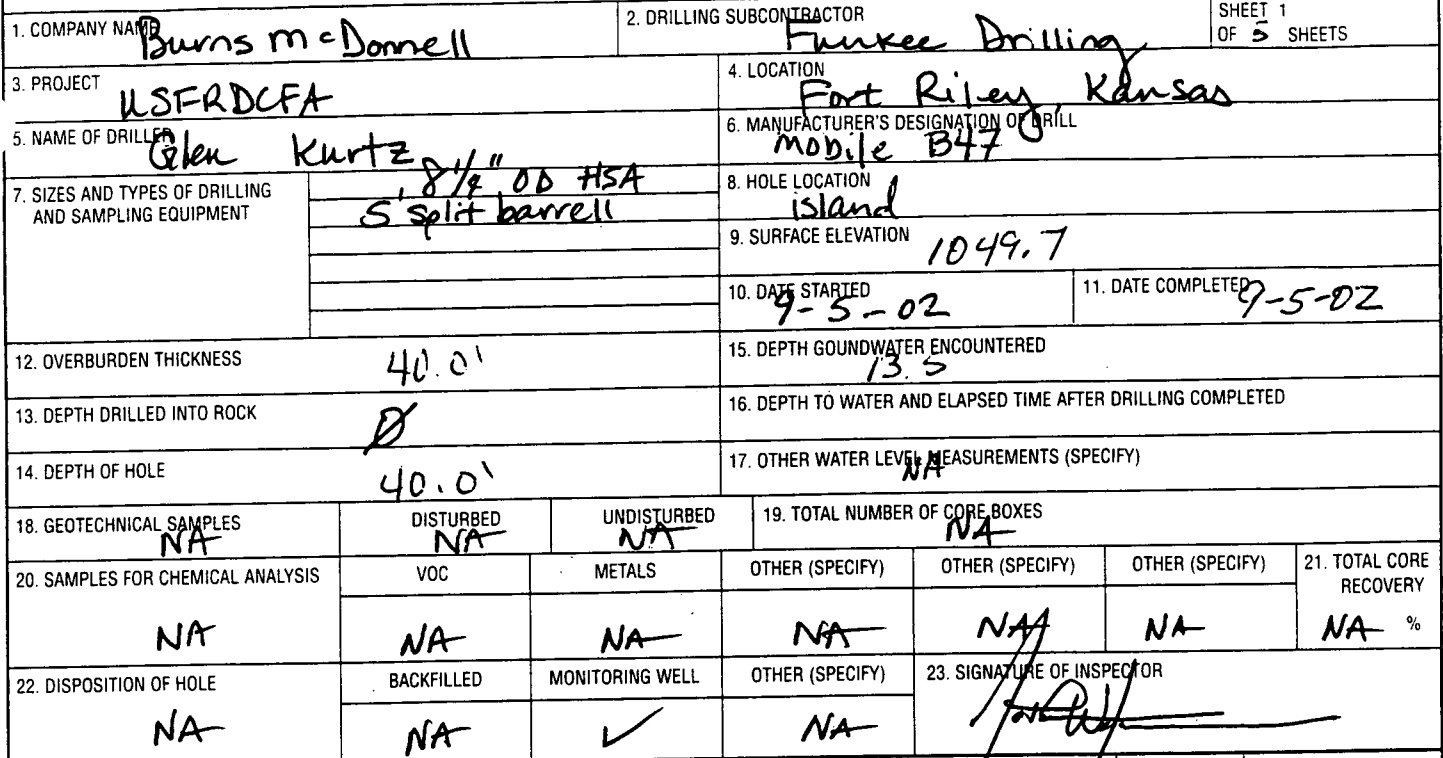 1. COMPANY NAME Burns McDonnell
2. DRILLING SUBCONTRACTOR Drilling
SHEET 1
OF 5 SHEETS
3. PROJECT USFRDCFA
4. LOCATION Fort Riley, Kansas
5. NAME OF DRILLER Glen Kurtz
6. MANUFACTURER'S DESIGNATION OF DRILL
Mobile B47
7. SIZES AND TYPES OF DRILLING
AND SAMPLING EQUIPMENT
8 1/4" OD HSA
5' split barrell
8. HOLE LOCATION
island
9. SURFACE ELEVATION 1049.7
10. DATE STARTED
9-5-02
11. DATE COMPLETED 9-5-02
12. OVERBURDEN THICKNESS 40.0'
15. DEPTH GOUNDWATER ENCOUNTERED
13.5
13. DEPTH DRILLED INTO ROCK Ø
16. DEPTH TO WATER AND ELAPSED TIME AFTER DRILLING COMPLETED
14. DEPTH OF HOLE 40.0'
17. OTHER WATER LEVEL MEASUREMENTS (SPECIFY)
NA
18. GEOTECHNICAL SAMPLES
NA
DISTURBED
NA
UNDISTURBED
NA
19. TOTAL NUMBER OF CORE BOXES
NA
20. SAMPLES FOR CHEMICAL ANALYSIS
NA
VOC
NA
METALS
NA
OTHER (SPECIFY)
NA
OTHER (SPECIFY)
NA
OTHER (SPECIFY)
NA
21. TOTAL CORE
RECOVERY
NA %
22. DISPOSITION OF HOLE
NA
BACKFILLED
NA
MONITORING WELL
✓
OTHER (SPECIFY)
NA
23. SIGNATURE OF INSPECTOR